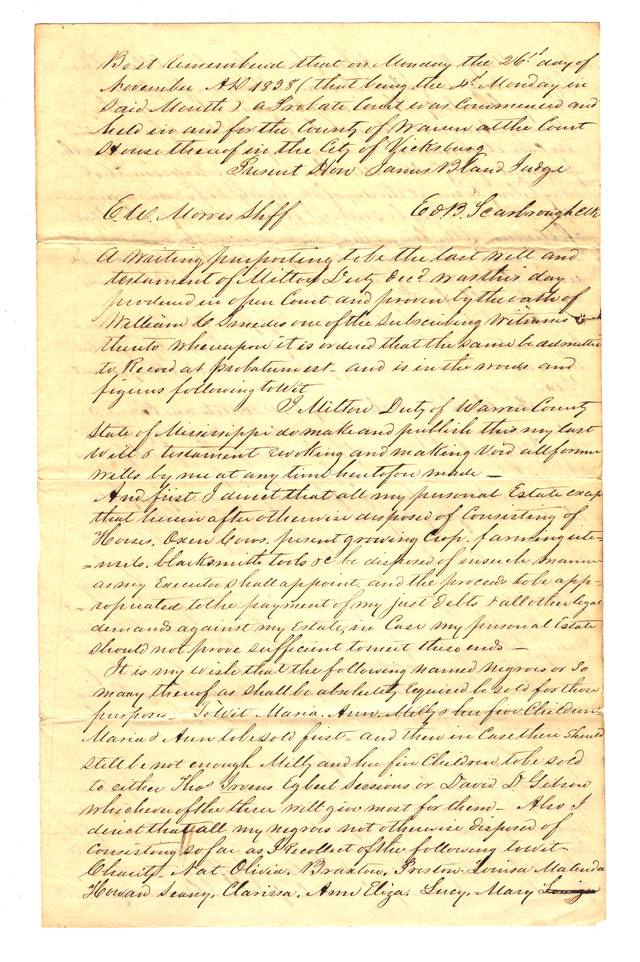 Be it remembered that on Monday the 26th day of
November AD 1838 (that being the 4th Monday in
said Month) a Probate Court was Commenced and
held in and for the County of Warren at the Court
House thereof in the City of Vicksburg
Present Hon James Bland Judge
E. W. Morris Shff Ed B. Scarbrough Clk
A writing purporting to be the last will and
testament of Milton Duty Decd was this day
produced in open Court and proven by the oath of
William C Smedes one of the subscribing Witness
thereto whereupon it is ordered that the same be admitted
to Record as probatum est and is in the words and
figures following to Wit
I Milton Duty of Warren County
State of Mississippi do make and publish this my last
will & testament revoking and making Void all former
wills by me at any time heretofore made —
And first I direct that all my personal Estate except
that herein after otherwise disposed of Consisting of
Horses, Oxen Cows, present growing Crop, farming uten-
-sils, blacksmith tools &c be disposed of in such manner
as my Executor shall appoint, and the proceeds to be app-
ropriated to the payment of my just Debts & all other legal
demands against my Estate, in Case my personal Estate
should not prove sufficient to meet these ends —
It is my wish that the following named negroes or so
many thereof as shall be absolutely required be sold for those
purposes — To Wit Maria, Ann, Milly & her five Children
Maria & Ann to be sold first and then in Case there should
still be not enough Milly and her five Children to be sold
to either Thos Irvens Egbert Sessions or David D. Gibson
whichever of the three will give most for them — Also I
direct that all my negroes not otherwise disposed of
Consisting so far as I Recollect of the following to Wit
Charity, Nat, Olivia, Braxton, Preston Louisa Malinda
Howard Seaney, Clarissa, Ann Eliza, Lucy, Mary Louisa